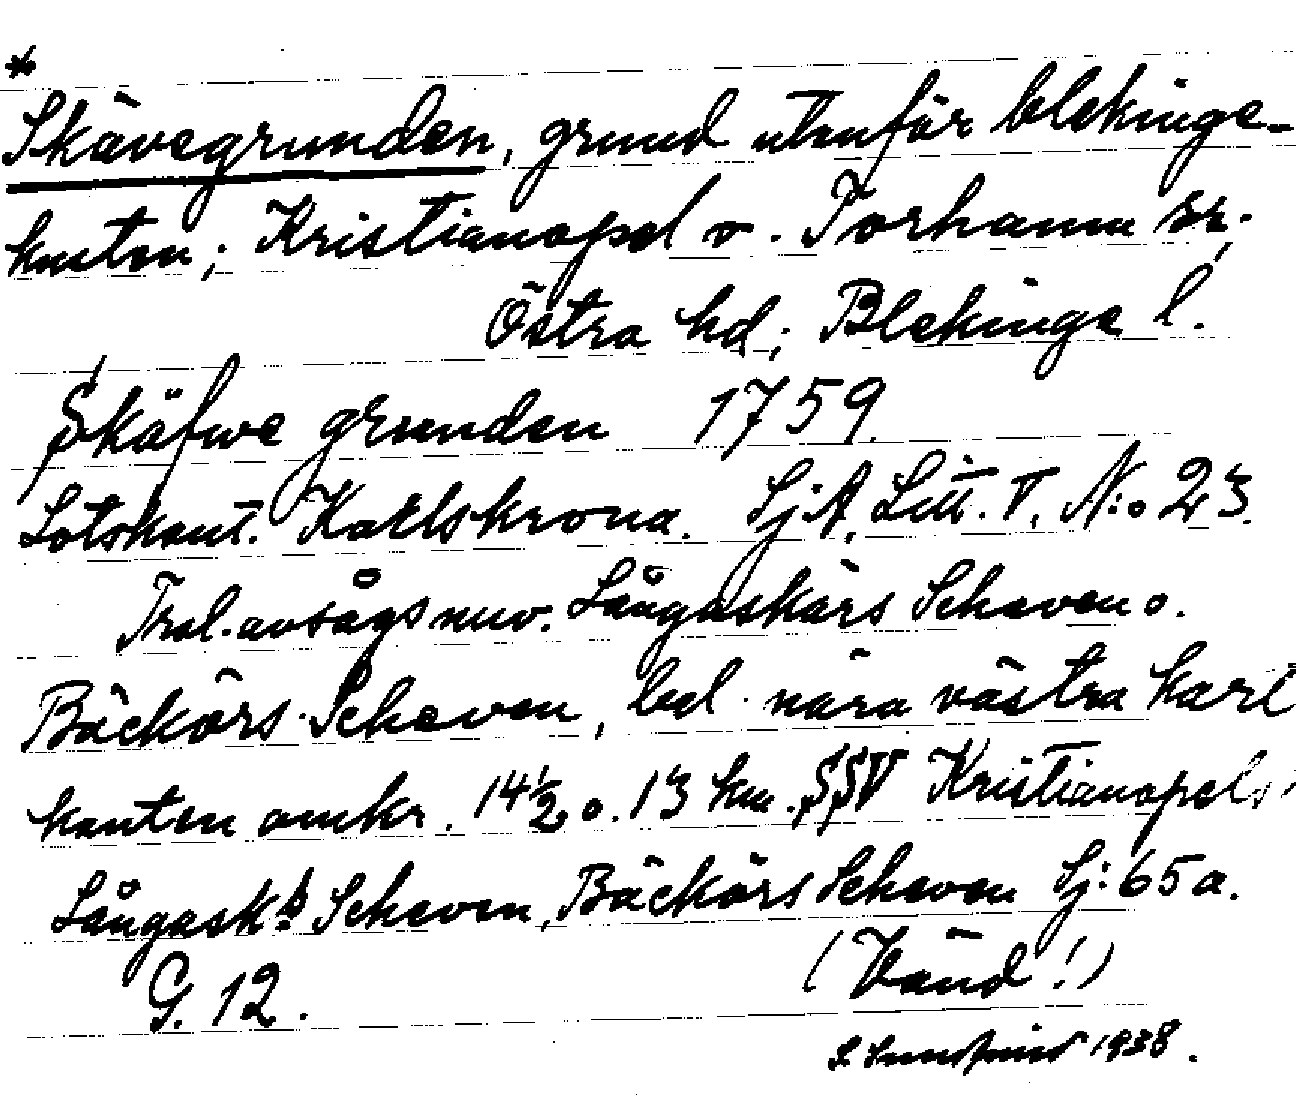 *
Skävegrunden, grund utanför blekinge-
kusten; Kristianopel o. Torhamn sr,
Östra hd; Blekinge l.
Skäfwe grunden 1759.
Lotskont. Karlskrona. SjA, Litt. T, N:o 23.
Trol. avsågs nuv. Långaskärs Scheven o.
Bäckörs Scheven, bel. nära västra kart
kanten omkr. 14½ o. 13 km. SSV Kristianopels;
Långask:s Scheven, Bäckörs Scheven Sj: 65 a.
G. 12. (Vänd!)
1938.